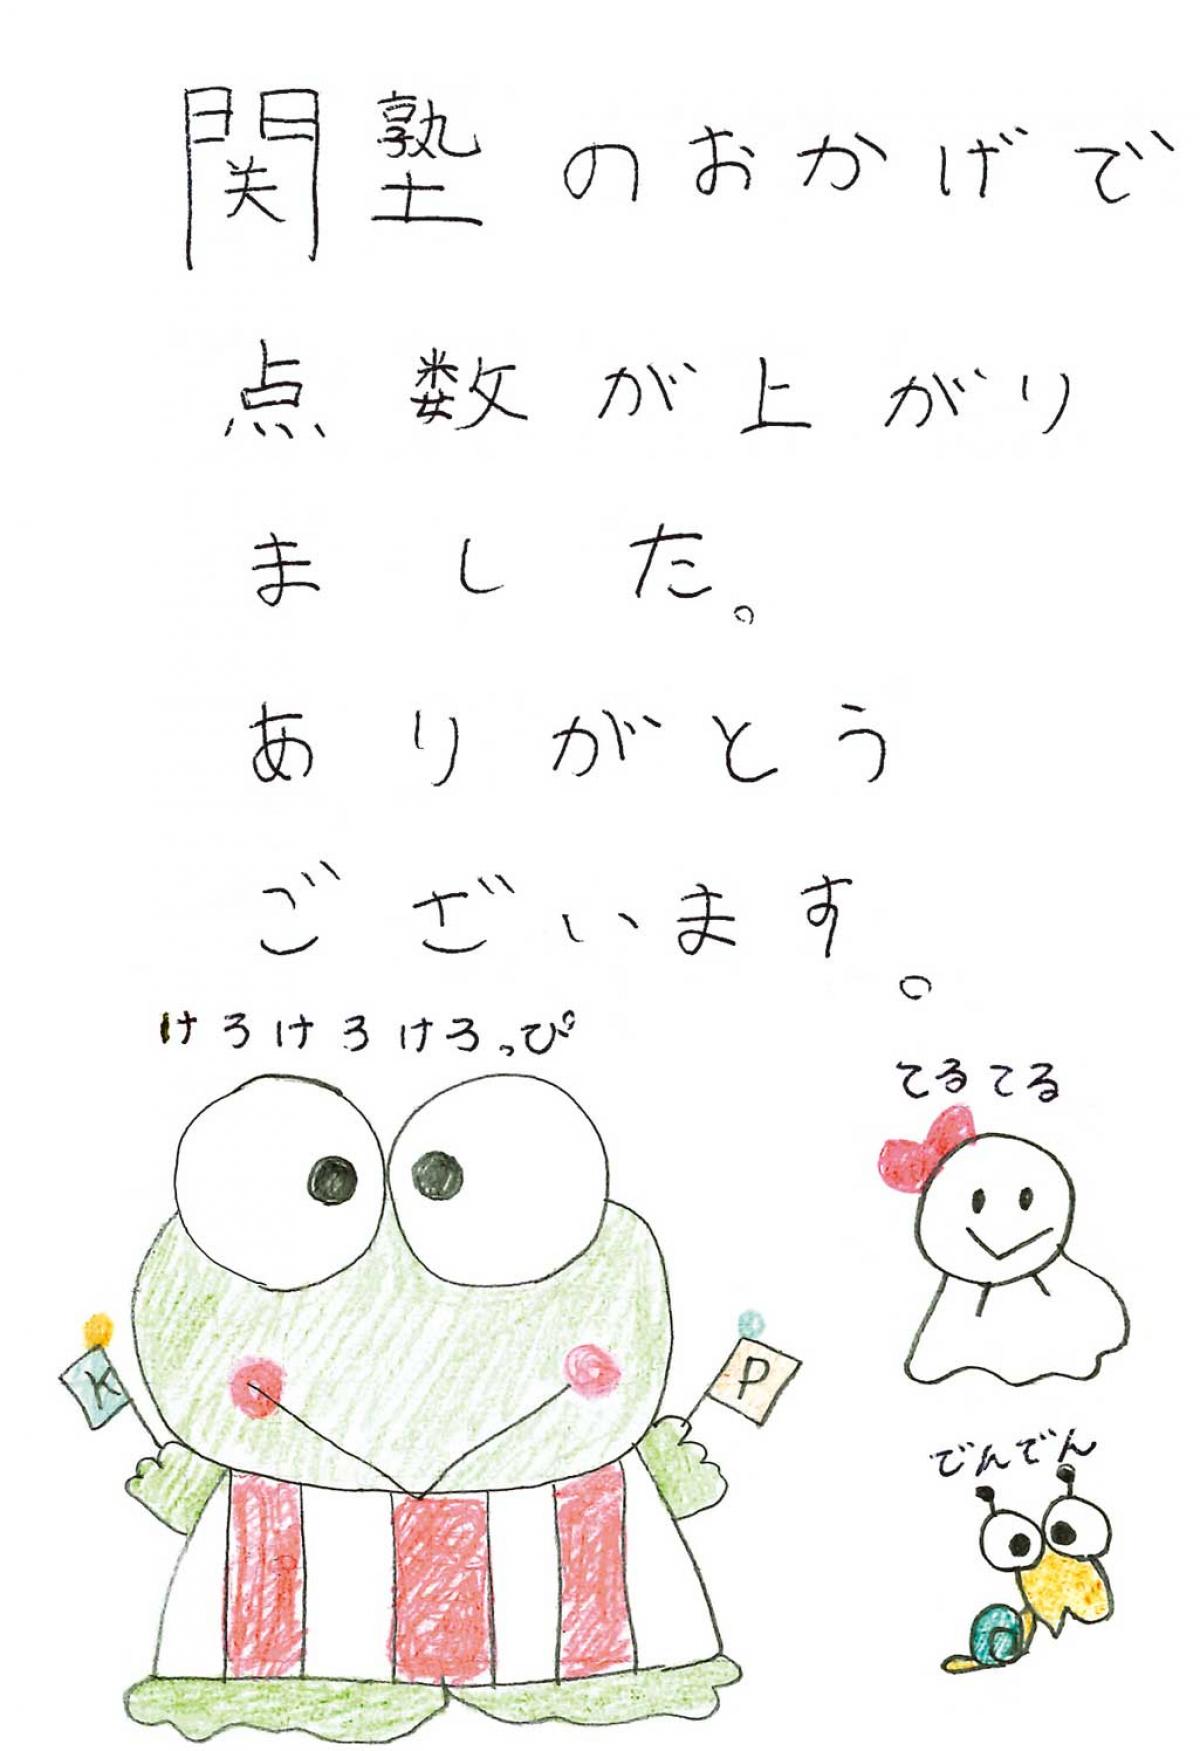 関塾のおかげで
点数が上がり
ました。
ありがとう
ございます。
けろけろけろっぴ
てるてる
K
P
でんでん